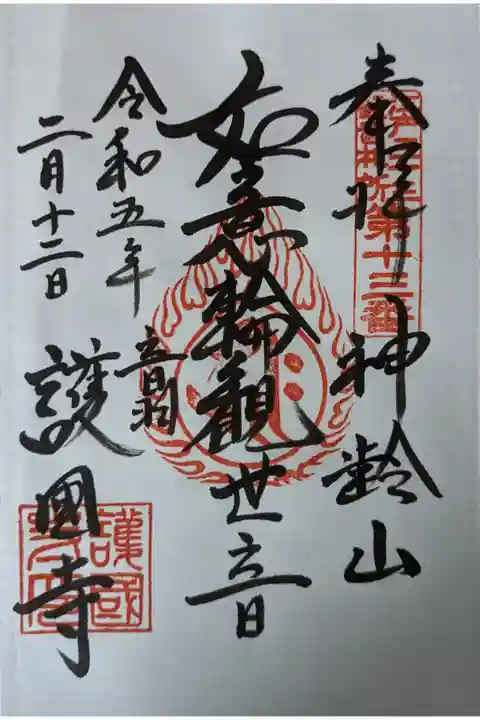 奉拝 神齢山
第十三番
如意輪觀世音
令和五年
二月十二日
音羽
護國寺
護國寺